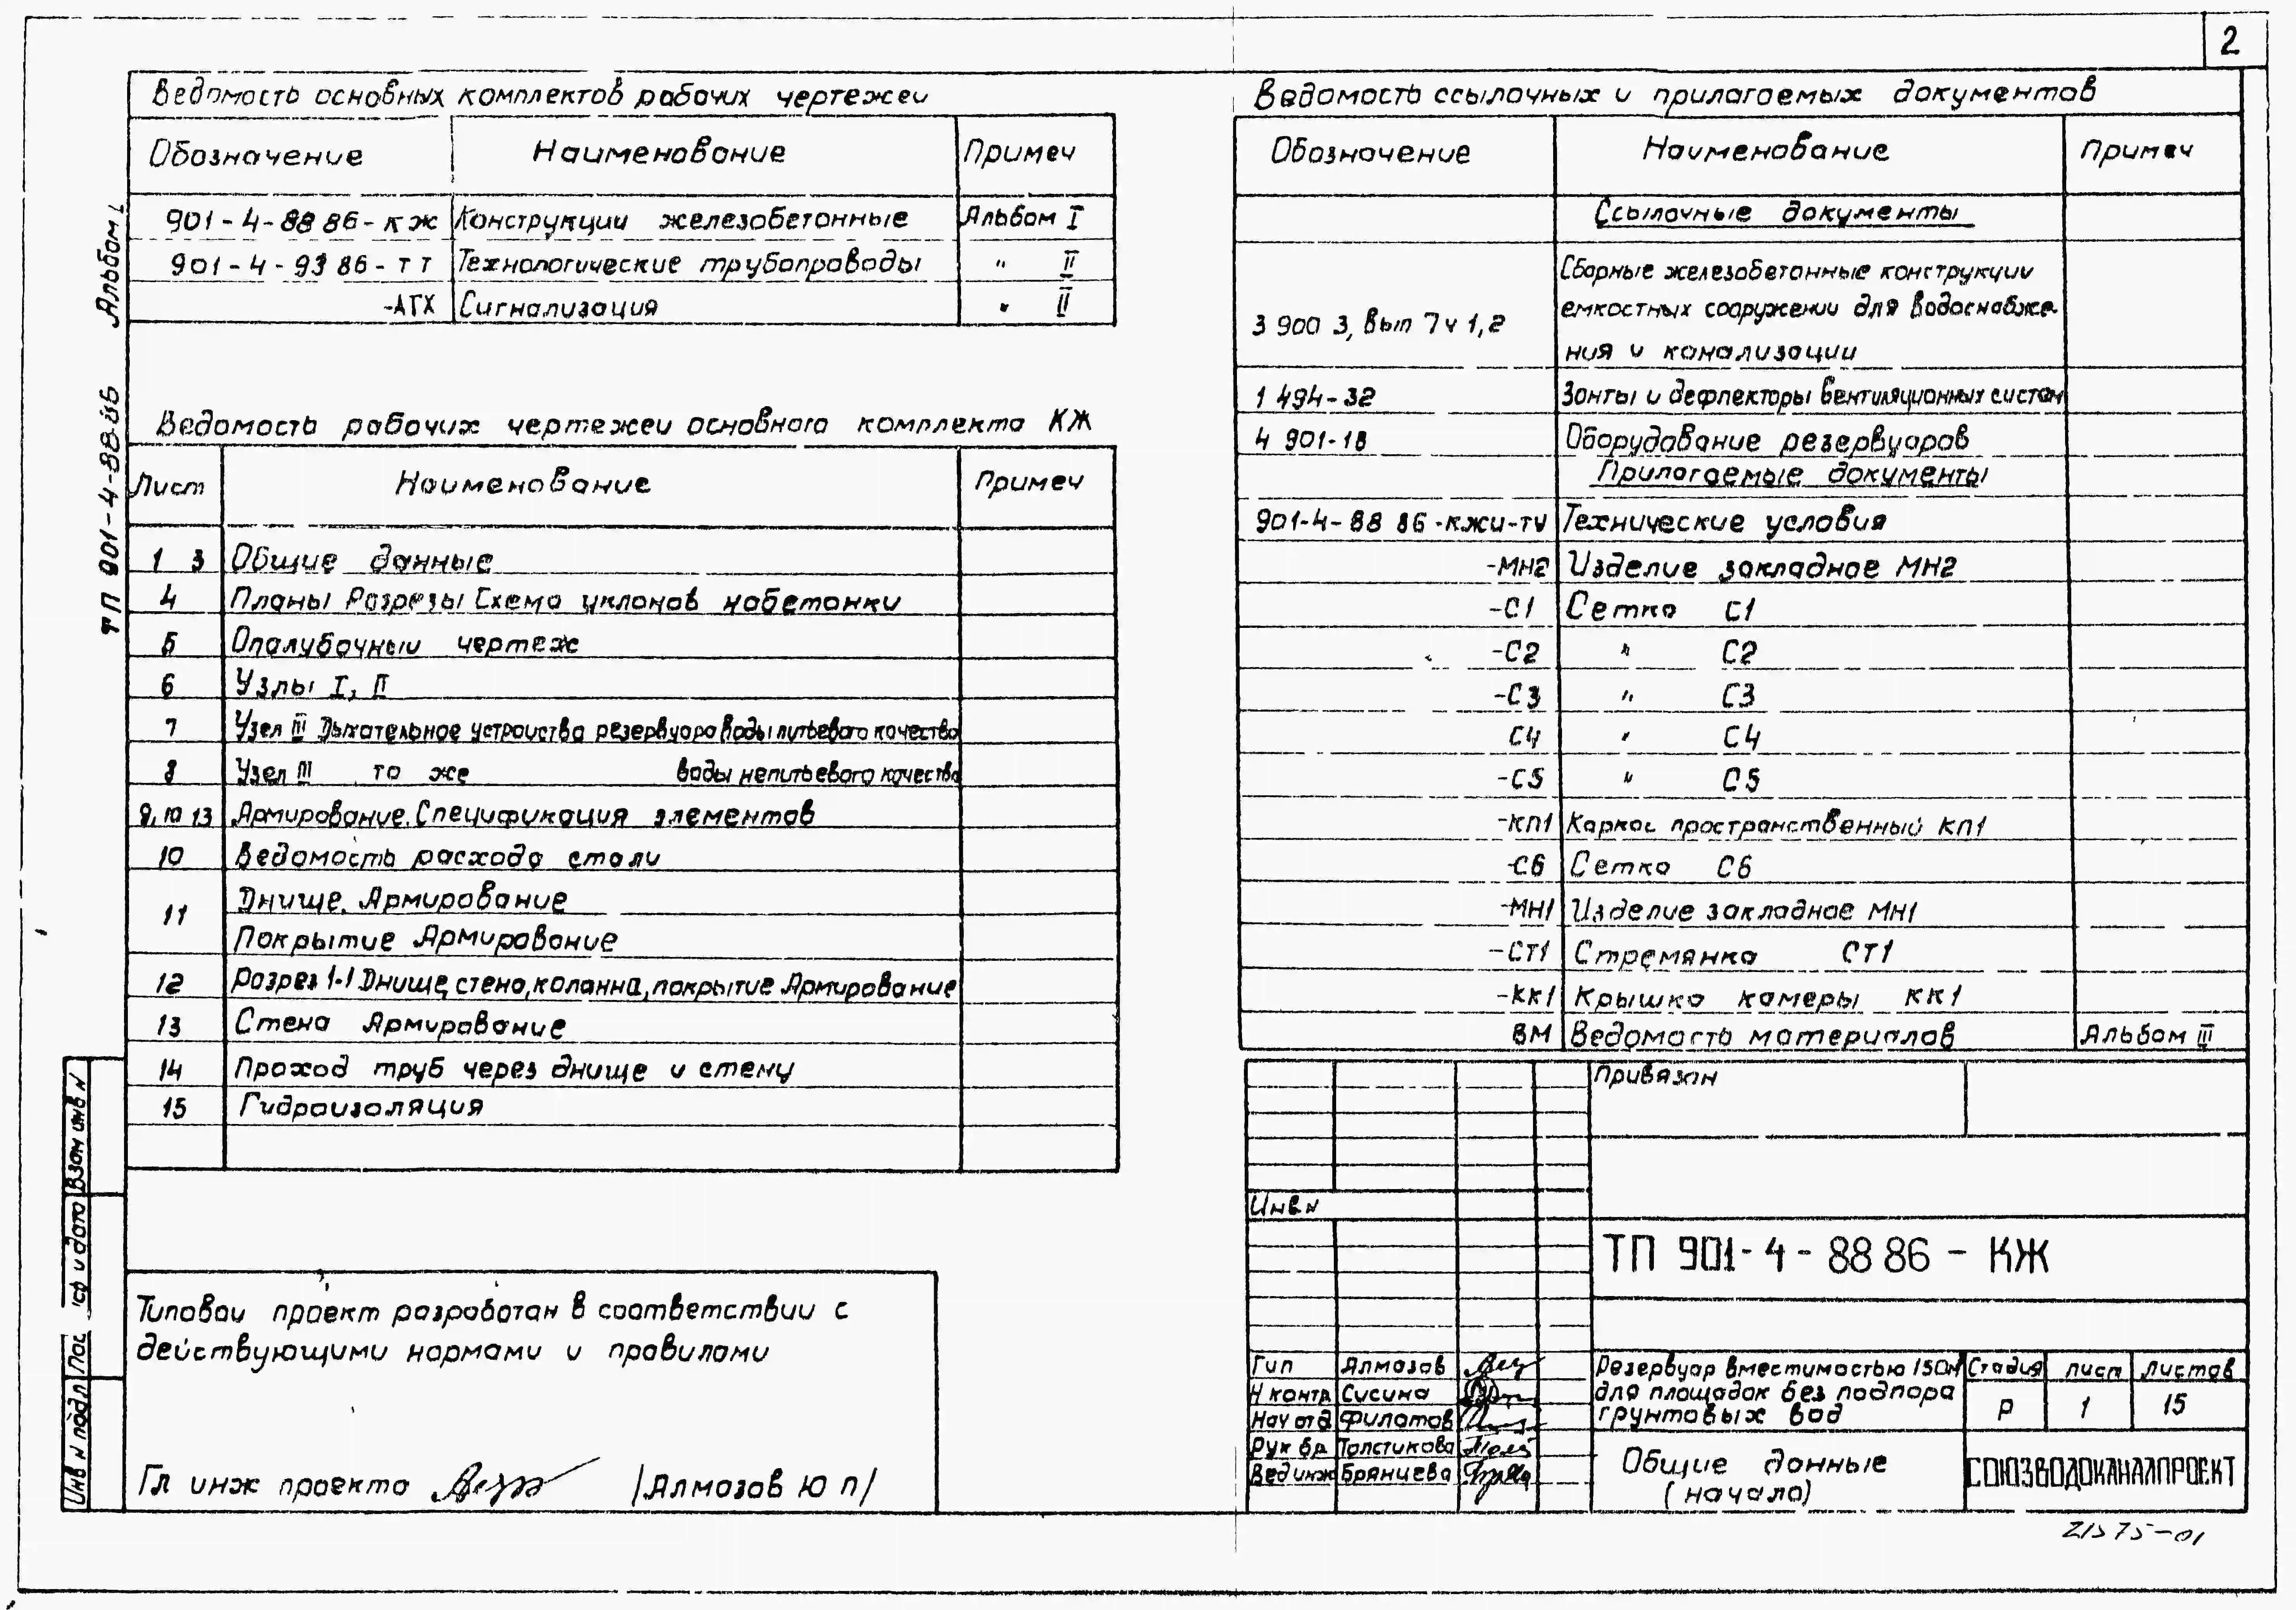 2
Ведомость основных комплектов рабочих чертежеи
Обозначение Наименование Примеч
901-4-88 86-КЖ Конструкции железобетонные Альбом I
901-4-93 86-ТТ Технологические трубопроводы " II
-АТХ Сигнализация " II
Ведомость рабочих чертежеи основного комплекта КЖ
Лист Наименование Примеч
1 3 Общие данные
4 Планы Разрезы Схема уклонов набетонки
5 Опалубочныи чертеж
6 Узлы I, II
7 Узел III Дыхательное устроиства резервуара воды питьевого качества
8 Узел III то же воды непитьевого качества
9, 10 13 Армирование. Спецификация элементов
10 Ведомость расхода стали
11 Днище. Армирование
Покрытие Армирование
12 Разрез 1-1 Днище, стена, колонна, покрытие Армирование
13 Стена Армирование
14 Проход труб через днище и стену
15 Гидроизоляция
Типовои проект разработан в соответствии с
действующими нормами и правилами
Гл инж проекта /Алмазов Ю П/
ТП 901-4-88.86 Альбом I
Взам инв N
и дата
Инв N подл
Ведомость ссылочных и прилагаемых документов
Обозначение Наименование Примеч
Ссылочные документы
Сборные железобетонные конструкции
емкостных сооружении для водоснабже-
3 900 3, Вып 7 ч 1,2
ния и канализации
1 494-32 Зонты и дефлекторы вентиляционных систем
4 901-18 Оборудование резервуаров
Прилагаемые документы
901-4-88 86-КЖИ-ТУ Технические условия
-МН2 Изделие закладное МН2
-С1 Сетка С1
-С2 " С2
-С3 " С3
С4 " С4
-С5 " С5
-КП1 Каркас пространственный КП1
-С6 Сетка С6
-МН1 Изделие закладное МН1
-СТ1 Стремянка СТ1
-КК1 Крышка камеры КК1
ВМ Ведомость материалов Альбом III
Привязан
Инв.N
ТП 901-4-88 86-КЖ
Гип Алмазов
Н контр Сусина
Нач отд Филатов
Рук бр Толстикова
Вед инж Брянцева
Резервуар вместимостью 150м
для площадок без подпора
грунтовых вод
Стадия Лист Листов
Р 1 15
Общие данные
(начало)
СОЮЗВОДОКАНАЛПРОЕКТ